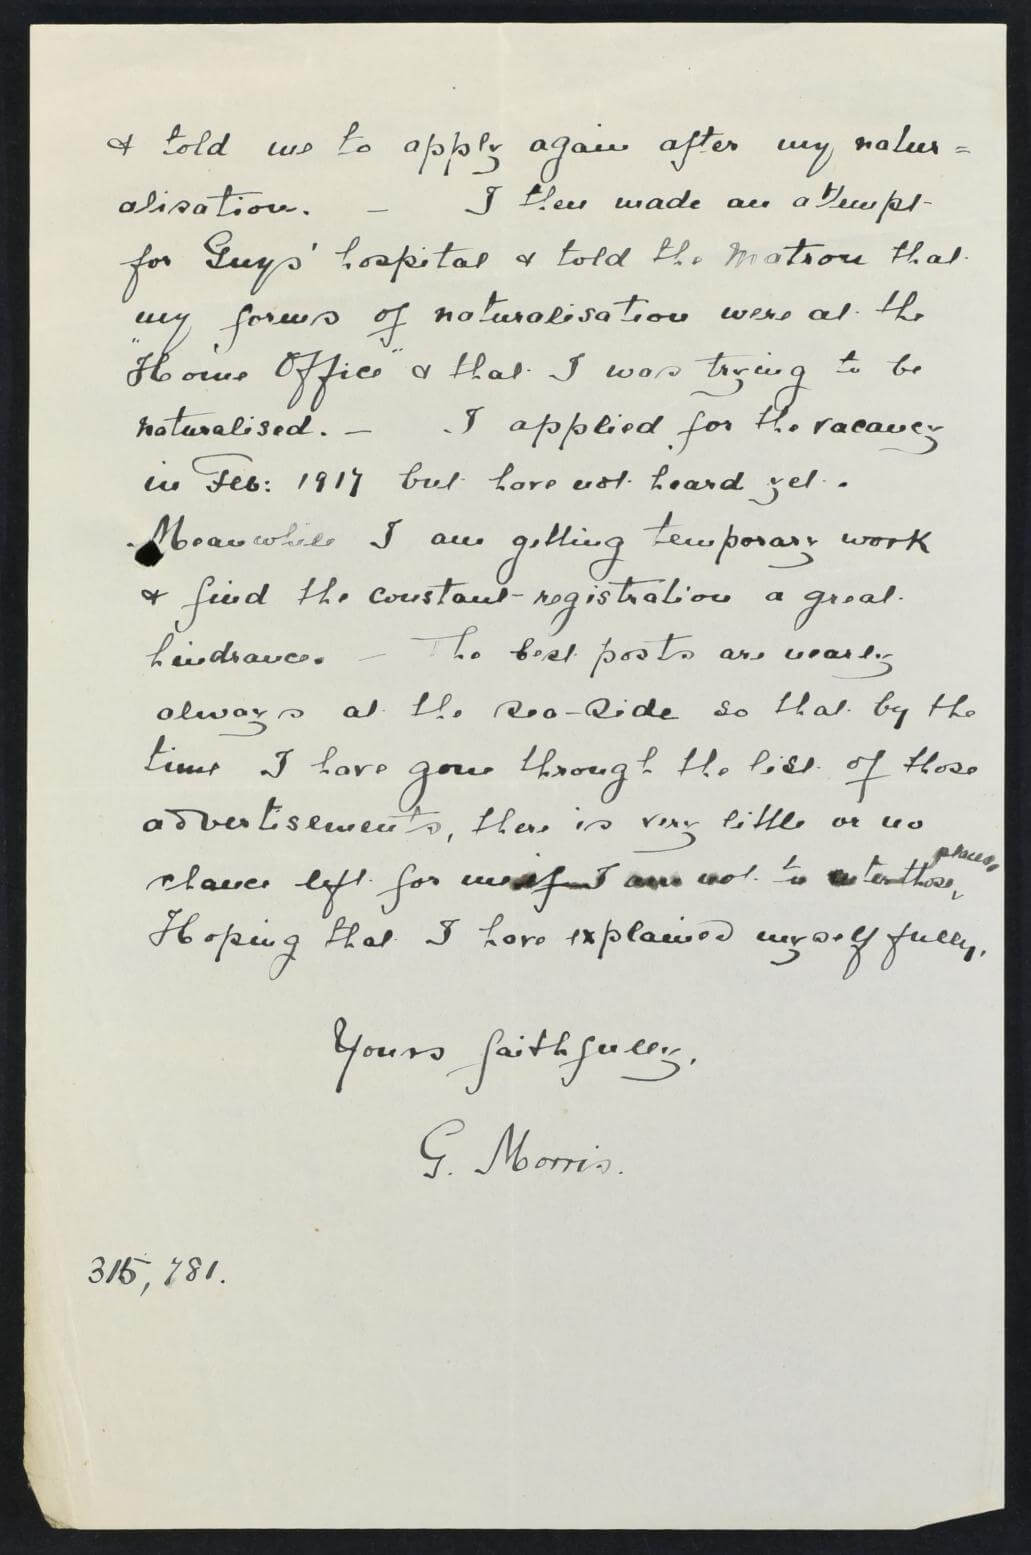 & told me to apply again after my natur=
alisation. – I then made an attempt
for Guys' hospital & told the Matron that
my forms of naturalisation were at the
"Home Office" & that I was trying to be
naturalised. – I applied for the vacancy
in Feb: 1917 but have not heard yet.
Meanwhile I am getting temporary work
& find the constant registration a great
hindrance. – The best posts are nearly
always at the sea-side so that by the
time I have gone through the list of those
advertisements, there is very little or no
places
chance left for me if I am not to enter those,
Hoping that I have explained myself fully,
Yours faithfully,
G. Morris.
315,781.